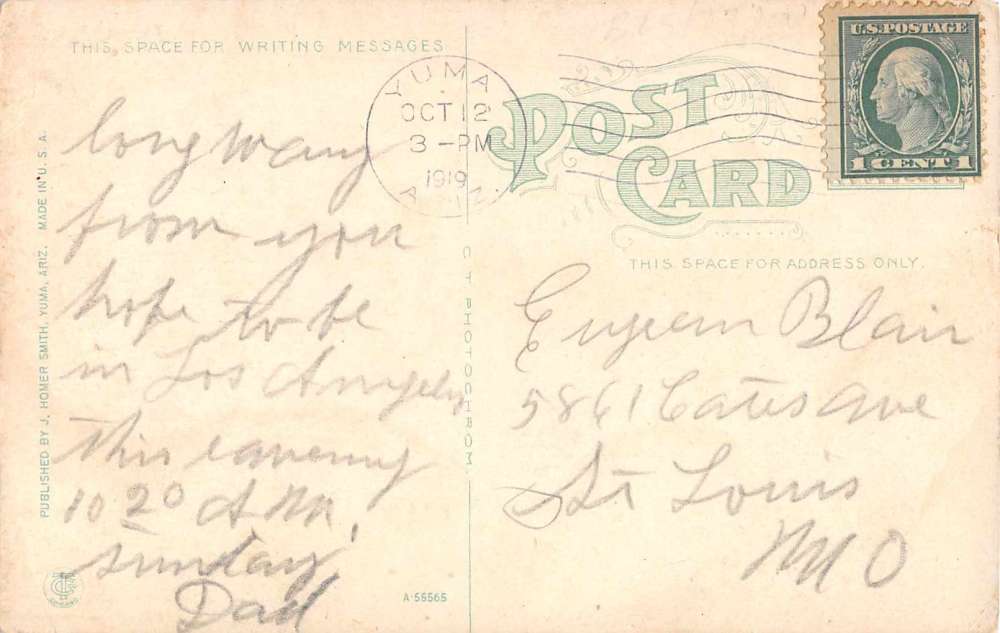 THIS SPACE FOR WRITING MESSAGES
long way
from you
hope to be
in Los Angeles
this evening
10 20 A M.
Sunday
Dad
PUBLISHED BY J. HOMER SMITH, YUMA, ARIZ. MADE IN U.S.A.
C T PHOTOCHROM
A-55565
YUMA
OCT 12
3-PM
1919
ARIZ.
POST
CARD
U.S. POSTAGE
1 CENT 1
THIS SPACE FOR ADDRESS ONLY.
Blair
5861 Cates Ave
St Louis
MO